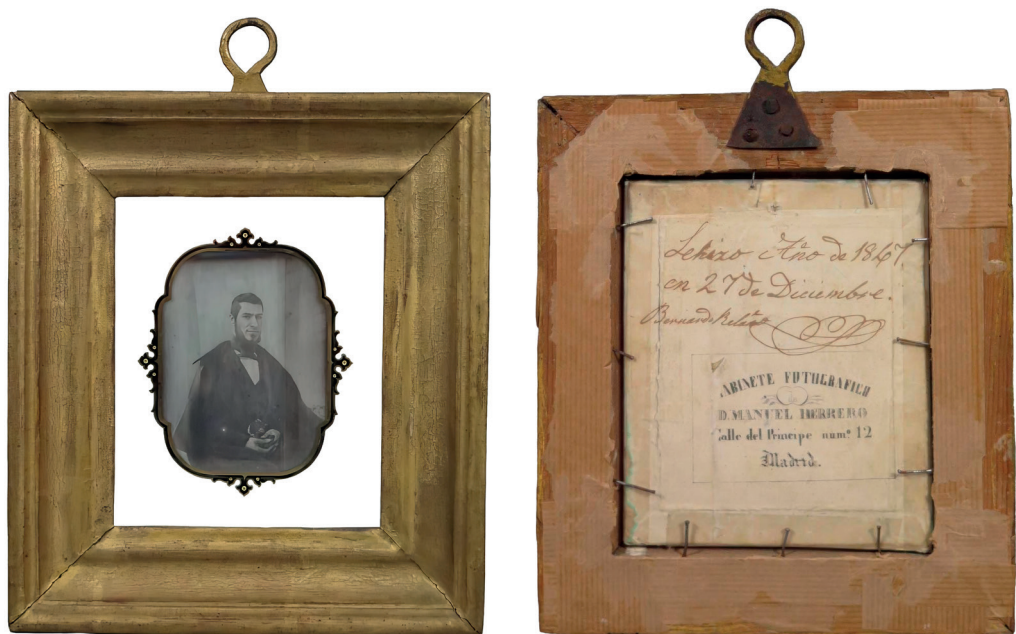 Sehizo Año de 1847
en 27 de Diciembre.
Bernardo
GABINETE FOTOGRAFICO
D. MANUEL HERRERO
Calle del Principe num.º 12
Madrid.